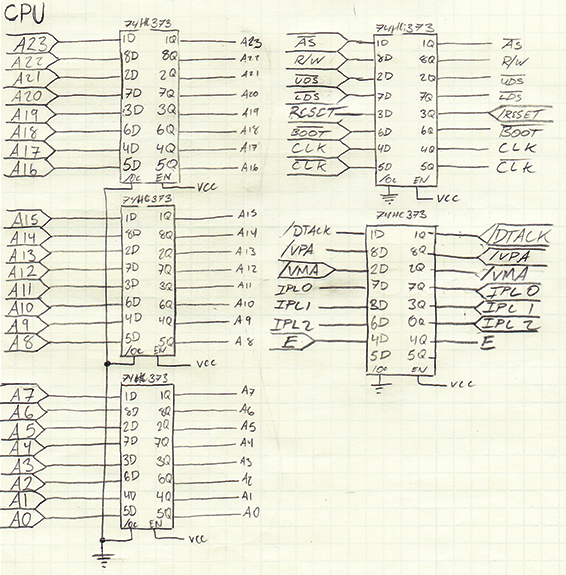 CPU
74HC373
A23 1D 1Q A23
A22 8D 8Q A22
A21 2D 2Q A21
A20 7D 7Q A20
A19 3D 3Q A19
A18 6D 6Q A18
A17 4D 4Q A17
A16 5D 5Q A16
/OC EN VCC
74HC373
A15 1D 1Q A15
A14 8D 8Q A14
A13 2D 2Q A13
A12 7D 7Q A12
A11 3D 3Q A11
A10 6D 6Q A10
A9 4D 4Q A9
A8 5D 5Q A8
/OC EN VCC
74HC373
A7 1D 1Q A7
A6 8D 8Q A6
A5 2D 2Q A5
A4 7D 7Q A4
A3 3D 3Q A3
A2 6D 6Q A2
A1 4D 4Q A1
A0 5D 5Q A0
/OC EN VCC
74HC373
A̅S̅ 1D 1Q A̅S̅
R/W̅ 8D 8Q R/W̅
U̅D̅S̅ 2D 2Q U̅D̅S̅
L̅D̅S̅ 7D 7Q L̅D̅S̅
R̅E̅S̅E̅T̅ 3D 3Q /RESET
B̅O̅O̅T̅ 6D 6Q B̅O̅O̅T̅
CLK 4D 4Q CLK
C̅L̅K̅ 5D 5Q C̅L̅K̅
/OC EN VCC
74HC373
/DTACK 1D 1Q /DTACK
/VPA 8D 8Q /VPA
/VMA 2D 2Q /VMA
IPL0 7D 7Q IPL0
IPL1 3D 3Q IPL1
IPL2 6D 6Q IPL2
E 4D 4Q E
5D 5Q
/OC EN VCC